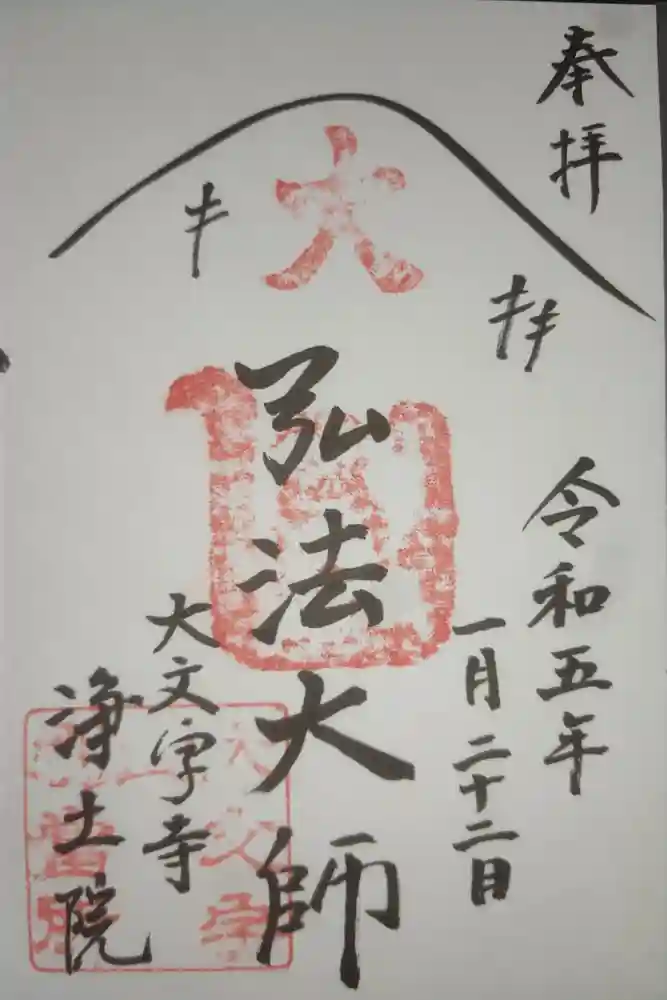 奉拝
令和五年
一月二十二日
大
弘法大師
大文字寺
浄土院